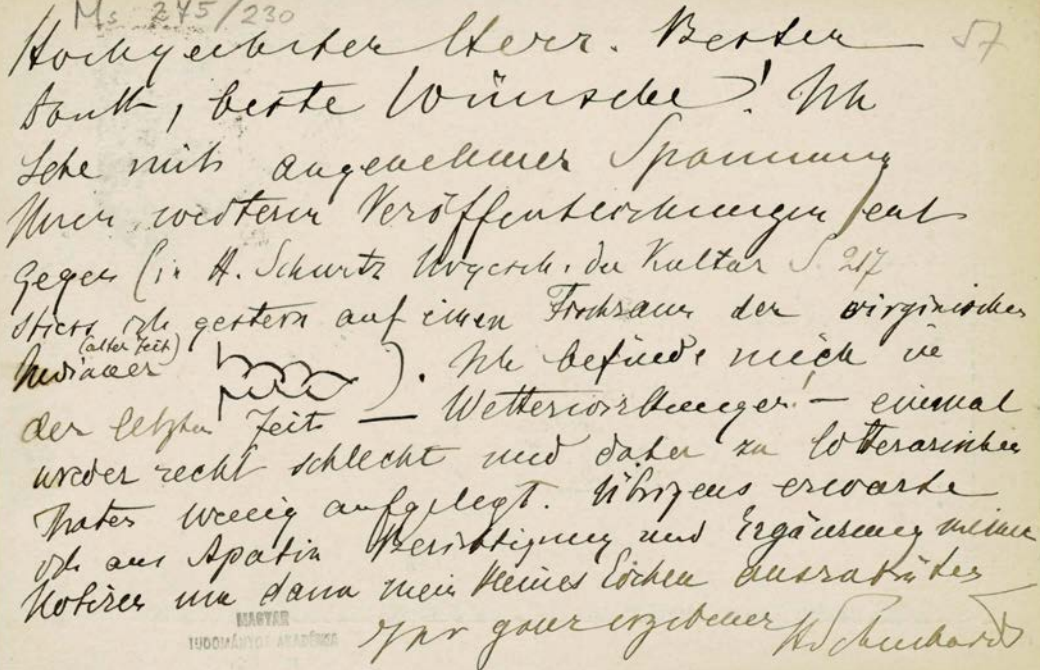 Ms 275/230
57
Hochgeehrter Herr. Besten
Dank, beste Wünsche! Ich
sehe mit angenehmer Spannung
Ihren weiteren Veröffentlichungen ent
gegen (in H. Schurtz Urgesch. der Kultur S. 217
stiess ich gestern auf einen Fischzaun der virginischen
Indianer (alter Zeit) ). Ich befinde mich in
der letzten Zeit — Wetterwirkungen! — einmal
wieder recht schlecht und daher zu litterarischen
Thaten wenig aufgelegt. Übrigens erwarte
ich aus Apatin Berichtigung und Ergänzung meiner
Notizen um dann mein kleines Eichen auszubrüten
Ihr ganz ergebener HSchuchardt
MAGYAR
TUDOMÁNYOS AKADÉMIA